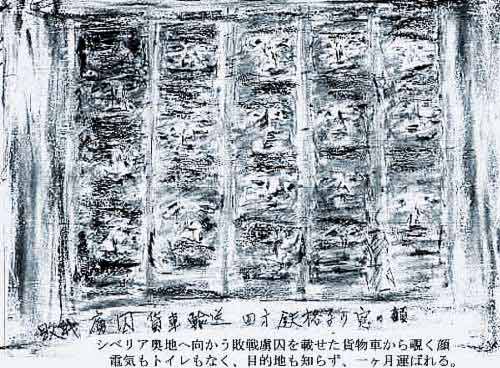 敗戦 虜囚 貨車輸送 四寸鉄格子の窓の顔
シベリア奥地へ向かう敗戦虜囚を載せた貨物車から覗く顔
電気もトイレもなく、目的地も知らず、一ヶ月運ばれる。